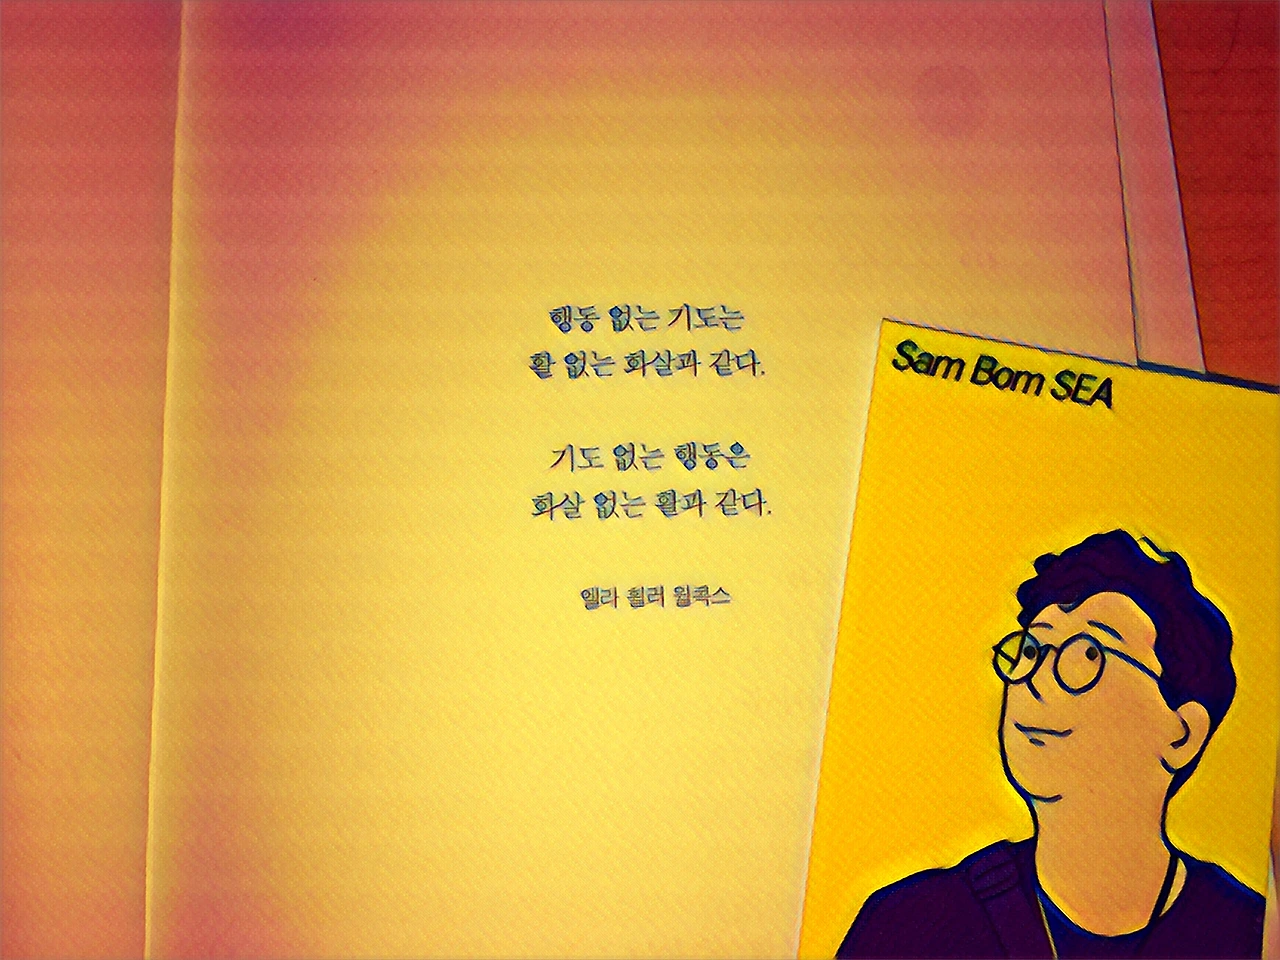 행동 없는 기도는
활 없는 화살과 같다.
기도 없는 행동은
화살 없는 활과 같다.
엘라 휠러 윌콕스
Sam Bom SEA